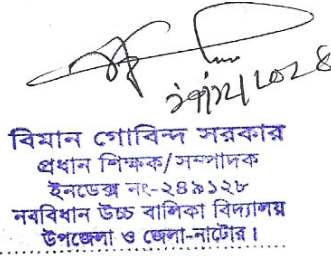 বিমান গোবিন্দ সরকার
প্রধান শিক্ষক/সম্পাদক
ইনডেক্স নং-২৪৯১২৮
নববিধান উচ্চ বালিকা বিদ্যালয়
উপজেলা ও জেলা-নাটোর।